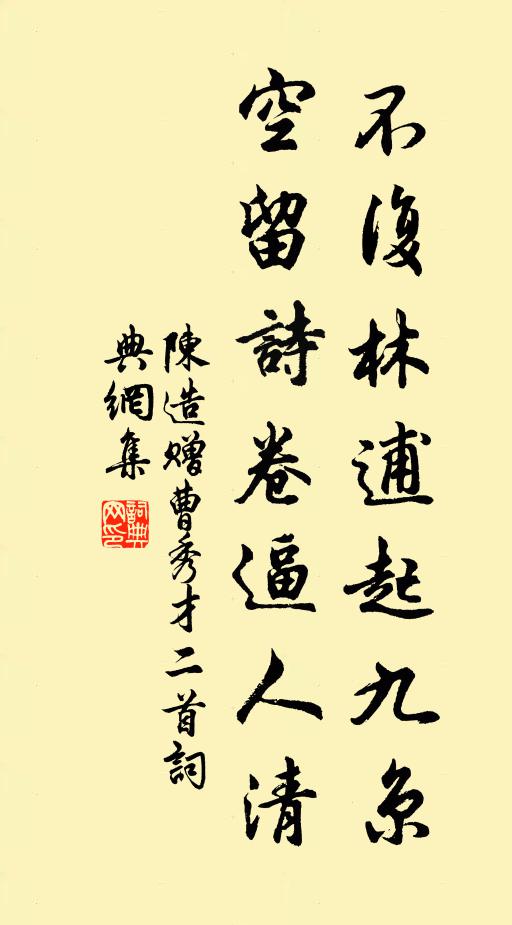 不復林逋起九京
空留詩卷逼人清
陳造贈曹秀才二首詞
典網集
詞典
网印